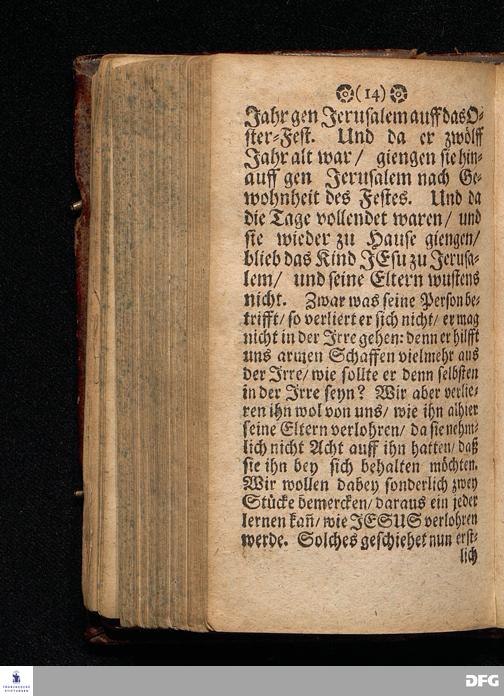 (14)
Jahr gen Jerusalem auff das O-
ster-Fest. Und da er zwölff
Jahr alt war/ giengen sie hin-
auff gen Jerusalem nach Ge-
wohnheit des Festes. Und da
die Tage vollendet waren/ und
sie wieder zu Hause giengen/
blieb das Kind JEsu zu Jerusa-
lem/ und seine Eltern wustens
nicht. Zwar was seine Person be-
trifft/ so verliert er sich nicht/ er mag
nicht in der Irre gehen: denn er hilfft
uns armen Schaffen vielmehr aus
der Irre/ wie sollte er denn selbsten
in der Irre seyn? Wir aber verlie-
ren ihn wol von uns/ wie ihn alhier
seine Eltern verlohren/ da sie nehm-
lich nicht Acht auff ihn hatten/ daß
sie ihn bey sich behalten möchten.
Wir wollen dabey sonderlich zwey
Stücke bemercken/ daraus ein jeder
lernen kañ/ wie JESUS verlohren
werde. Solches geschiehet nun erst-
lich
FRANCKESCHE
STIFTUNGEN
DFG